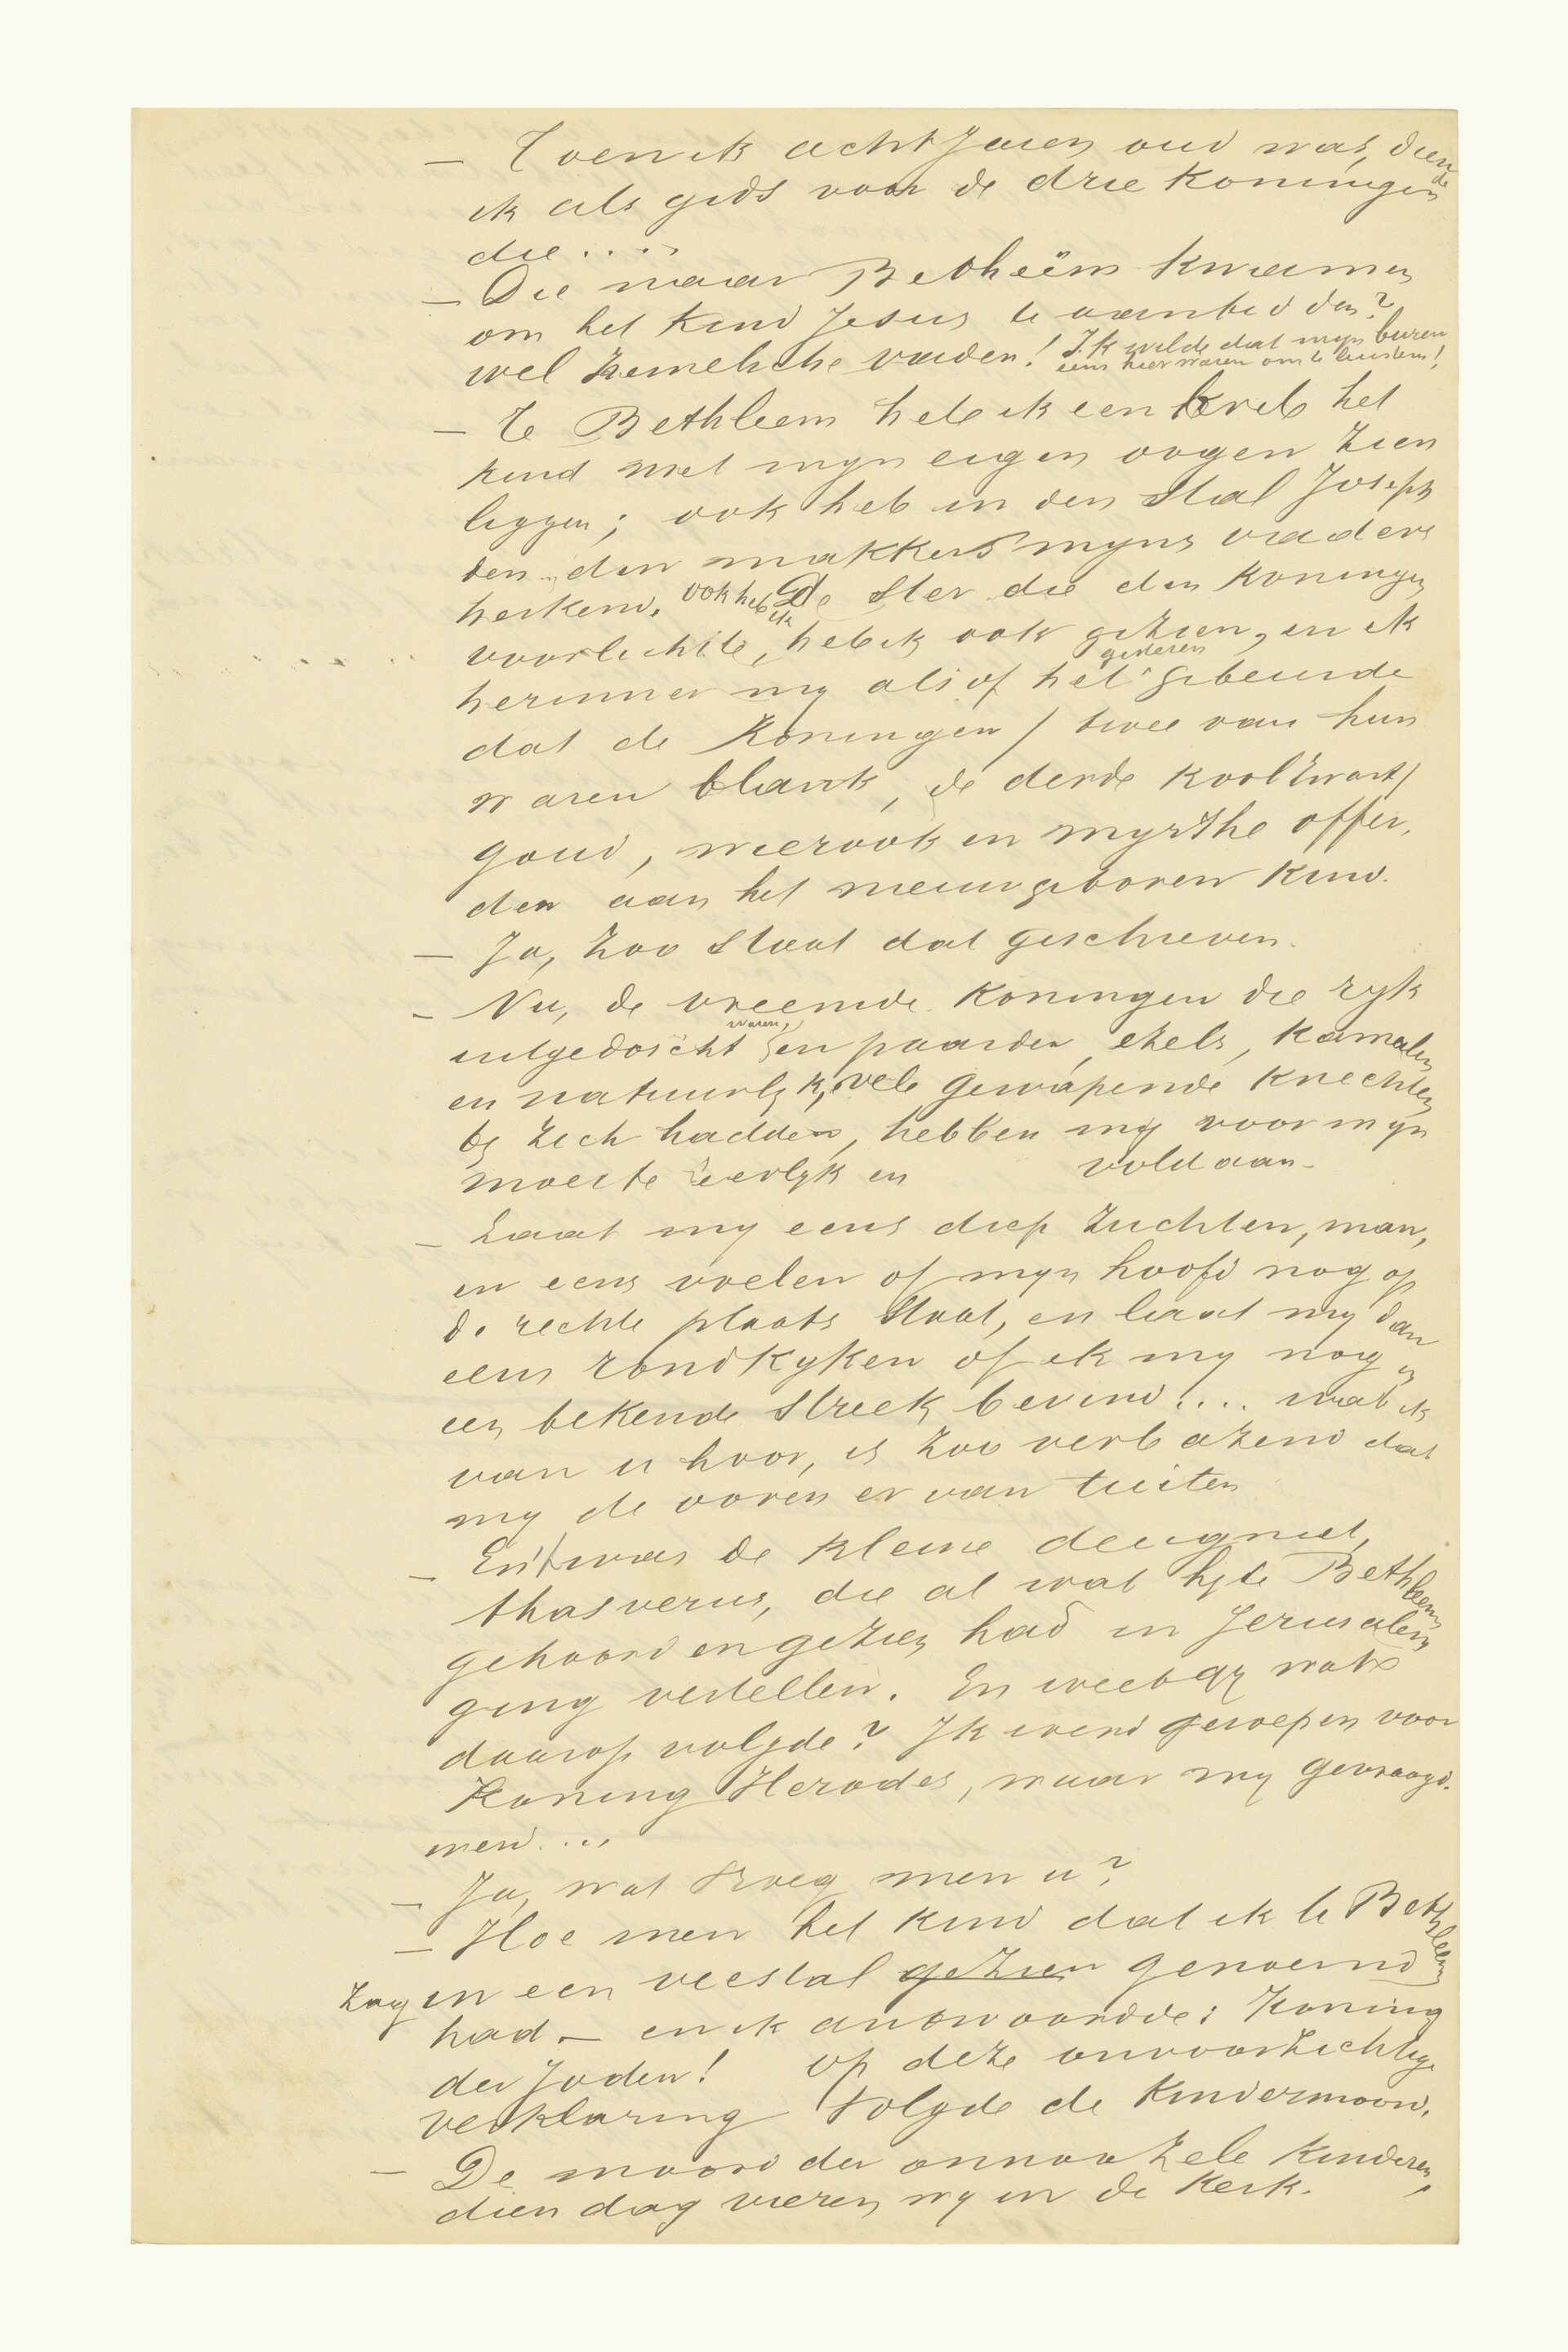 — Toen ik acht Jaren oud was, diende
ik als gids voor de drie Koningen
die....
— Die naar Betheëm kwamen
om het kind Jesus te aanbidden?
wel hemelsche vaders! Ik wilde dat mijn buren
eens hier waren om te luisteren!
— Te Bethleem heb ik een kreb het
kind met myn eigen oogen zien
liggen; ook heb in den Stal Joseph
den den makkers myns vaders
herkend. ook heb ik De Ster die den Koningen
voorlichtte, heb ik ook gezien, en ik
herinner my alsof het gisteren gebeurde
dat de Koningen / twee van hun
waren blank, de derde koolzwart /
goud, wierook en myrthe offer,
den aan het nieuwgeboren kind.
— Ja, zoo staat dat geschreven.
— Nu, de vreemde Koningen die ryk
uitgedoscht waren, en paarden, ezels, Kamelen
en natuurlyk, vele gewapende knechten
by zich hadden, hebben my voor myn
moeite eerlyk en voldaan.
— Laat my eens diep zuchten, man,
en eens voelen of myn hoofd nog op
de rechte plaats staat, en laat my dan
eens rondkyken of ik my nog in
een bekende Streek bevind.... wat ik
van u hoor, is zoo verbazend dat
my de ooren er van tuiten
— En 't was de kleine deugniet,
Ahasverus, die al wat hy te Bethleem
gehoord en gezien had in Jerusalem
ging vertellen. En weet gy wat
daarop volgde? Ik werd geroepen voor
Koning Herodes, waar my gevraagd
werd....
— Ja, wat vroeg men u?
— Hoe men het kind dat ik te Bethleem
zag in een veestal gezien genoemd
had — en ik antwoordde: Koning
der Joden! Op deze onvoorzichtige
verklaring volgde de Kindermoord.
— De moord der onnoozele Kinderen,
dien dag vieren wy in de Kerk.